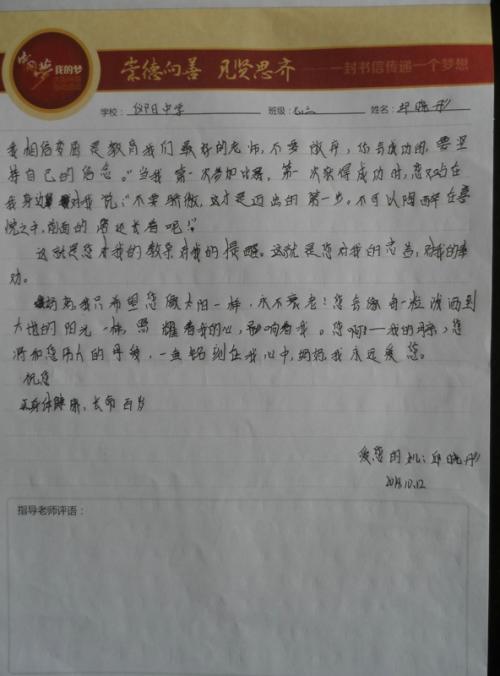 中国梦 我的梦
崇德向善 见贤思齐 ——一封书信传递一个梦想
学校：仰日中学 班级：七六 姓名：邱晓彤
我相信幸福是教育我们最好的老师，不要放弃，你会成功的，要坚
持自己的信念。"当我第一次参加比赛，第一次获得成功时，您又站在
我身边对我说："不要骄傲，这才是迈出的第一步，不可以陶醉在喜
悦之中，前面的路还长着呢！"
这就是您对我的教亲对我的提醒。这就是您对我的忠告，对我的奉
劝。
妈妈我只希望您像太阳一样，永不衰老！您会像每一粒洒西到
大地的阳光一样，照耀着我的心，影响着我。您啊！——我的妈妈，您
将和您伟大的母爱，一直铭刻在我心中，妈妈我永远爱您。
祝您
身体健康，长命百岁
爱您的 邱晓彤
2013.10.12
指导老师评语：